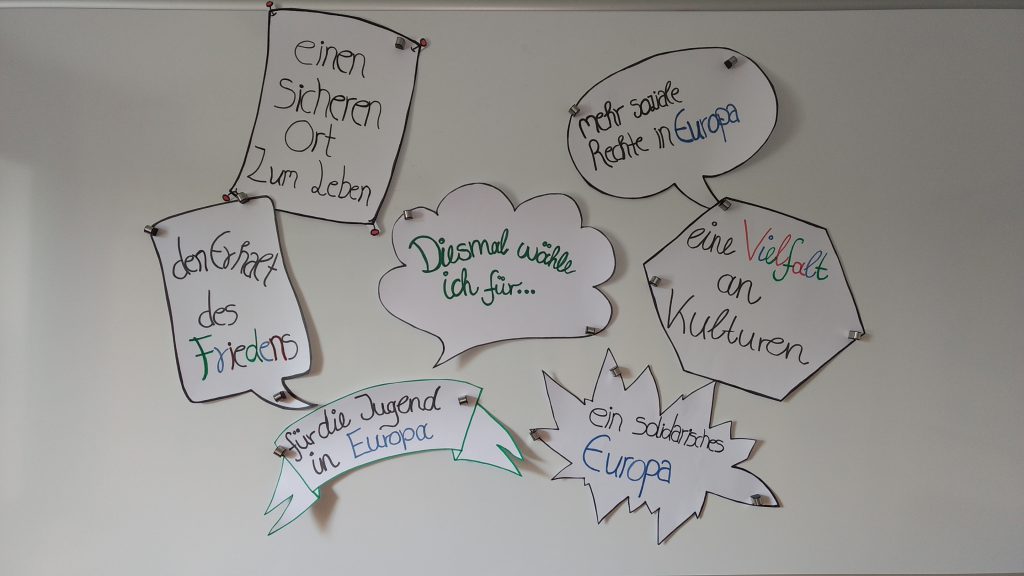 einen
sicheren
Ort
Zum Leben
mehr soziale
Rechte in Europa
den Erhalt
des
Friedens
Diesmal wähle
ich für...
eine Vielfalt
an
Kulturen
für die Jugend
in Europa
ein solidarisches
Europa